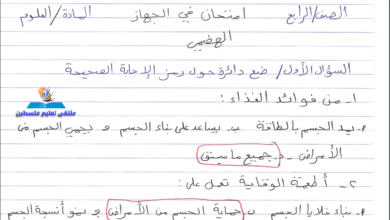 الصف/الرابع    امتحان في الجهاز    المادة/العلوم
الهضمي
السؤال الأول/ ضع دائرة حول رمز الإجابة الصحيحة
ملتقى تعليم فلسطين
١- من فوائد الغذاء:
يمد الجسم بالطاقة ب. يساعد على بناء الجسم و يحمي الجسم من
الأمراض د. جميع ما سبق
٢- أطعمة الوقاية تعمل على:
بناء خلايا الجسم ب. حماية الجسم من الأمراض و نمو أنسجة الجسم